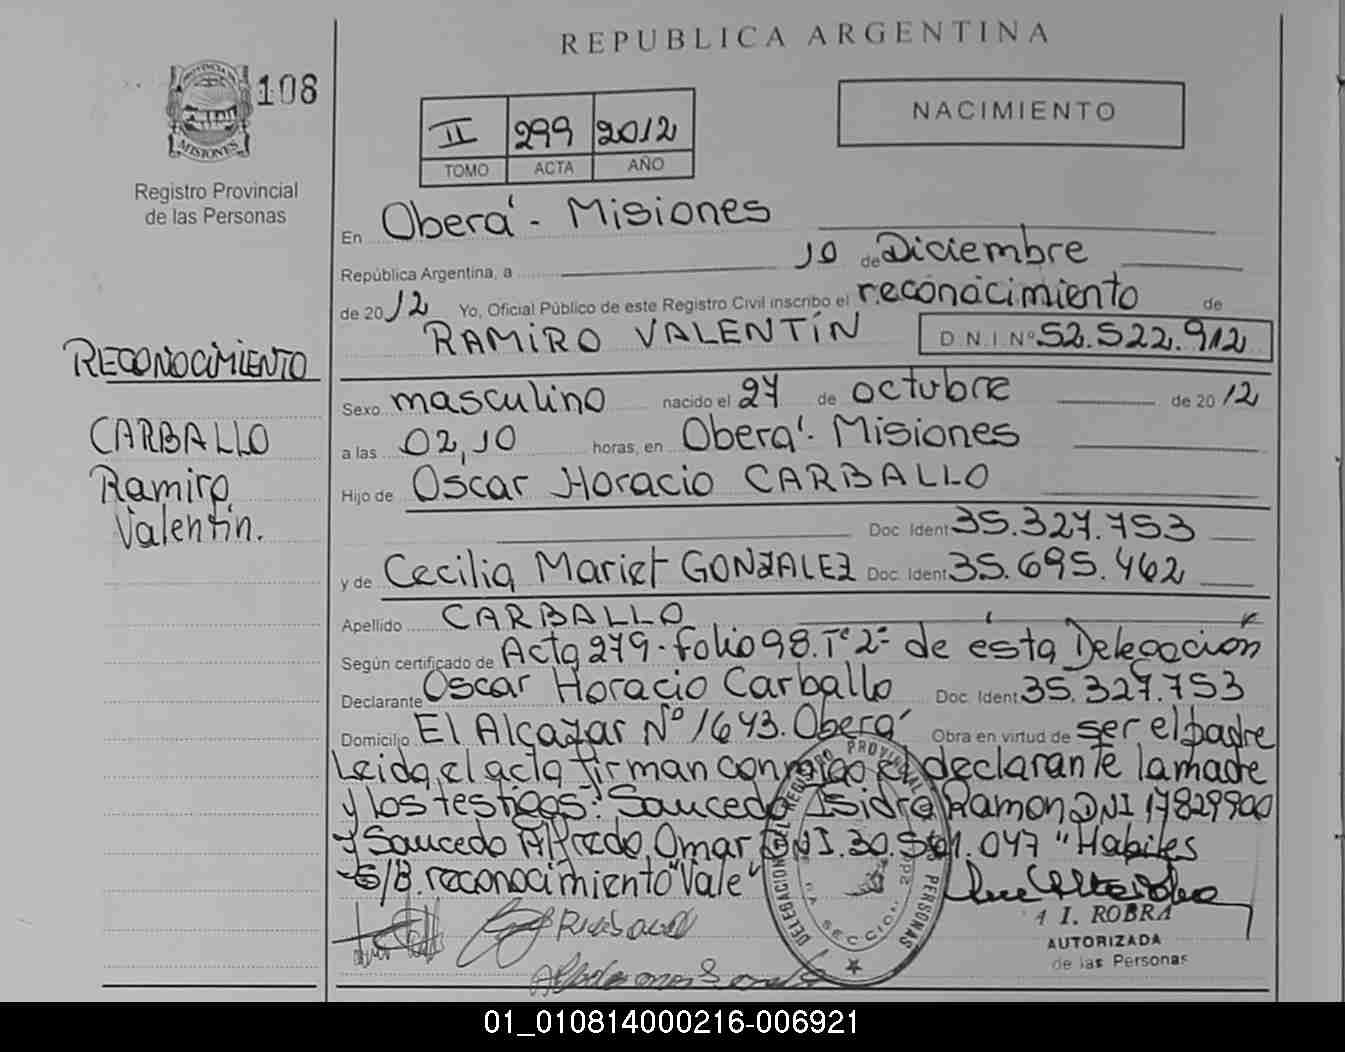 REPUBLICA ARGENTINA
108
PROVINCIA DE
MISIONES
Registro Provincial
de las Personas
NACIMIENTO
II 299 2012
TOMO ACTA AÑO
En Oberá - Misiones
República Argentina, a 10 de Diciembre
de 2012 Yo, Oficial Público de este Registro Civil inscribo el reconocimiento de
RAMIRO VALENTÍN D.N.I. Nº 52.522.912
RECONOCIMIENTO
CARBALLO
Ramiro
Valentín.
Sexo masculino nacido el 27 de octubre de 2012
a las 02,10 horas, en Oberá. Misiones
Hijo de Oscar Horacio CARBALLO
Doc. Ident 35.327.753
y de Cecilia Mariet GONZALEZ Doc. Ident 35.695.462
Apellido CARBALLO
Según certificado de Acta 279. folio 98. Tº 2º de ésta Delegación
Declarante Oscar Horacio Carballo Doc. Ident 35.327.753
Domicilio El Alcazar Nº 1643. Oberá Obra en virtud de ser el padre
Leida el acta firman conmigo el declarante la madre
y los testigos: Saucedo Isidro Ramon DNI 17829900
y Saucedo Alfredo Omar DNI. 30.501.047 "Habiles
S/B. reconocimiento "Vale"
DELEGACION DEL REGISTRO PROVINCIAL PERSONAS
SECCION
I. ROBRA
AUTORIZADA
de las Personas
01_010814000216-006921